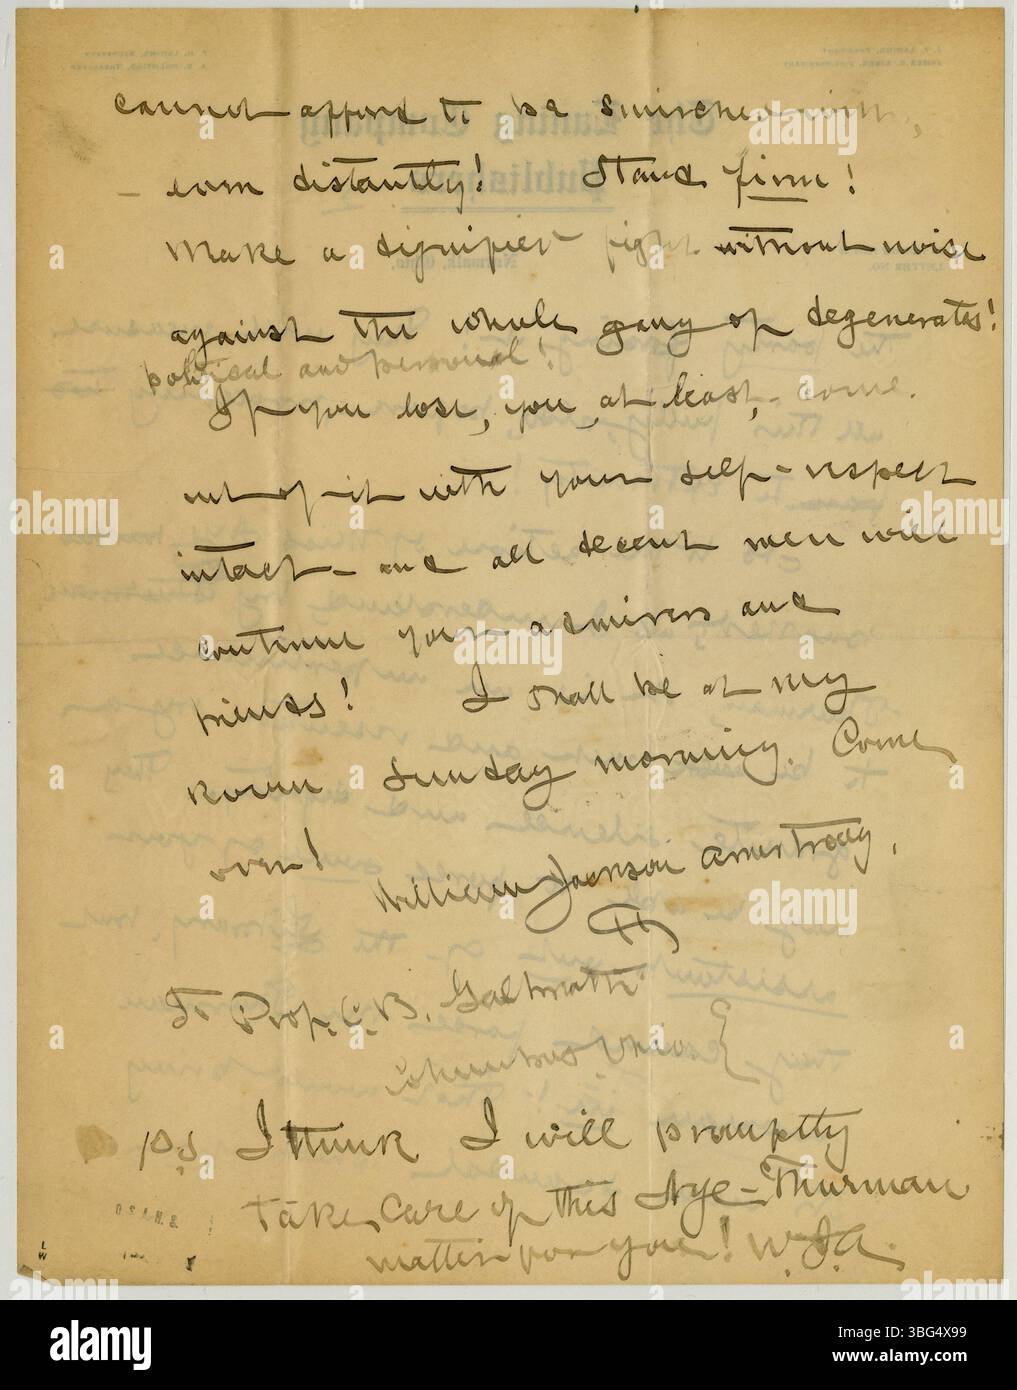 cannot afford to be smirched with,
– even distantly! Stand firm!
Make a dignified fight without noise
against the whole gang of degenerates!
political and personal!
If you lose, you, at least, come
out of it with your self-respect
intact – and all decent men will
continue your admirers and
friends! I shall be at my
room Sunday morning. Come
over!
William Jackson Armstrong,
To Prof. C. B. Galbreath
Columbus, Ohio
P.S I think I will promptly
take care of this Nye-Thurman
matter for you! W.J.A.
O.S.A.H.S.
L
W
alamy
Image ID: 3BG4X99
www.alamy.com